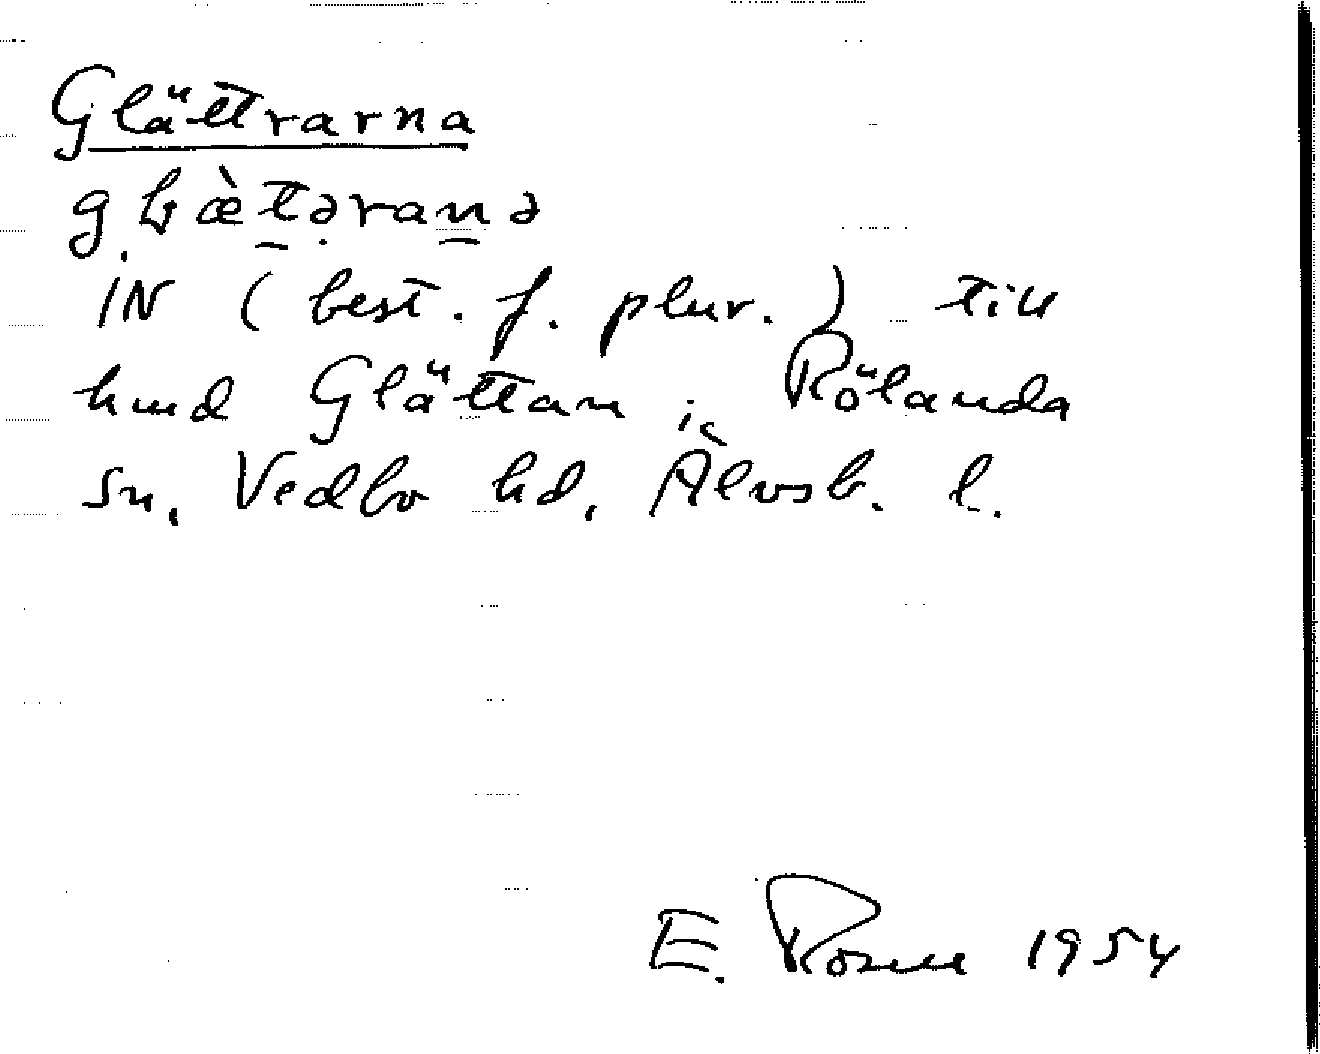 Glättrarna
gḷæ̀t̠ərạn̠ə
IN (best. f. plur.) till
hmd Glättan i Rölanda
sn, Vedbo hd, Älvsb. l.
E. 1954